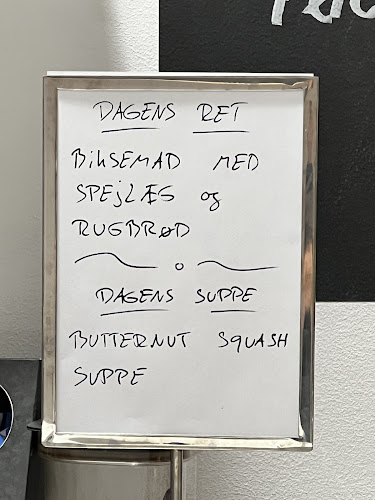 DAGENS RET
BIKSEMAD MED
SPEJLÆG og
RUGBRØD
DAGENS SUPPE
BUTTERNUT SQUASH
SUPPE